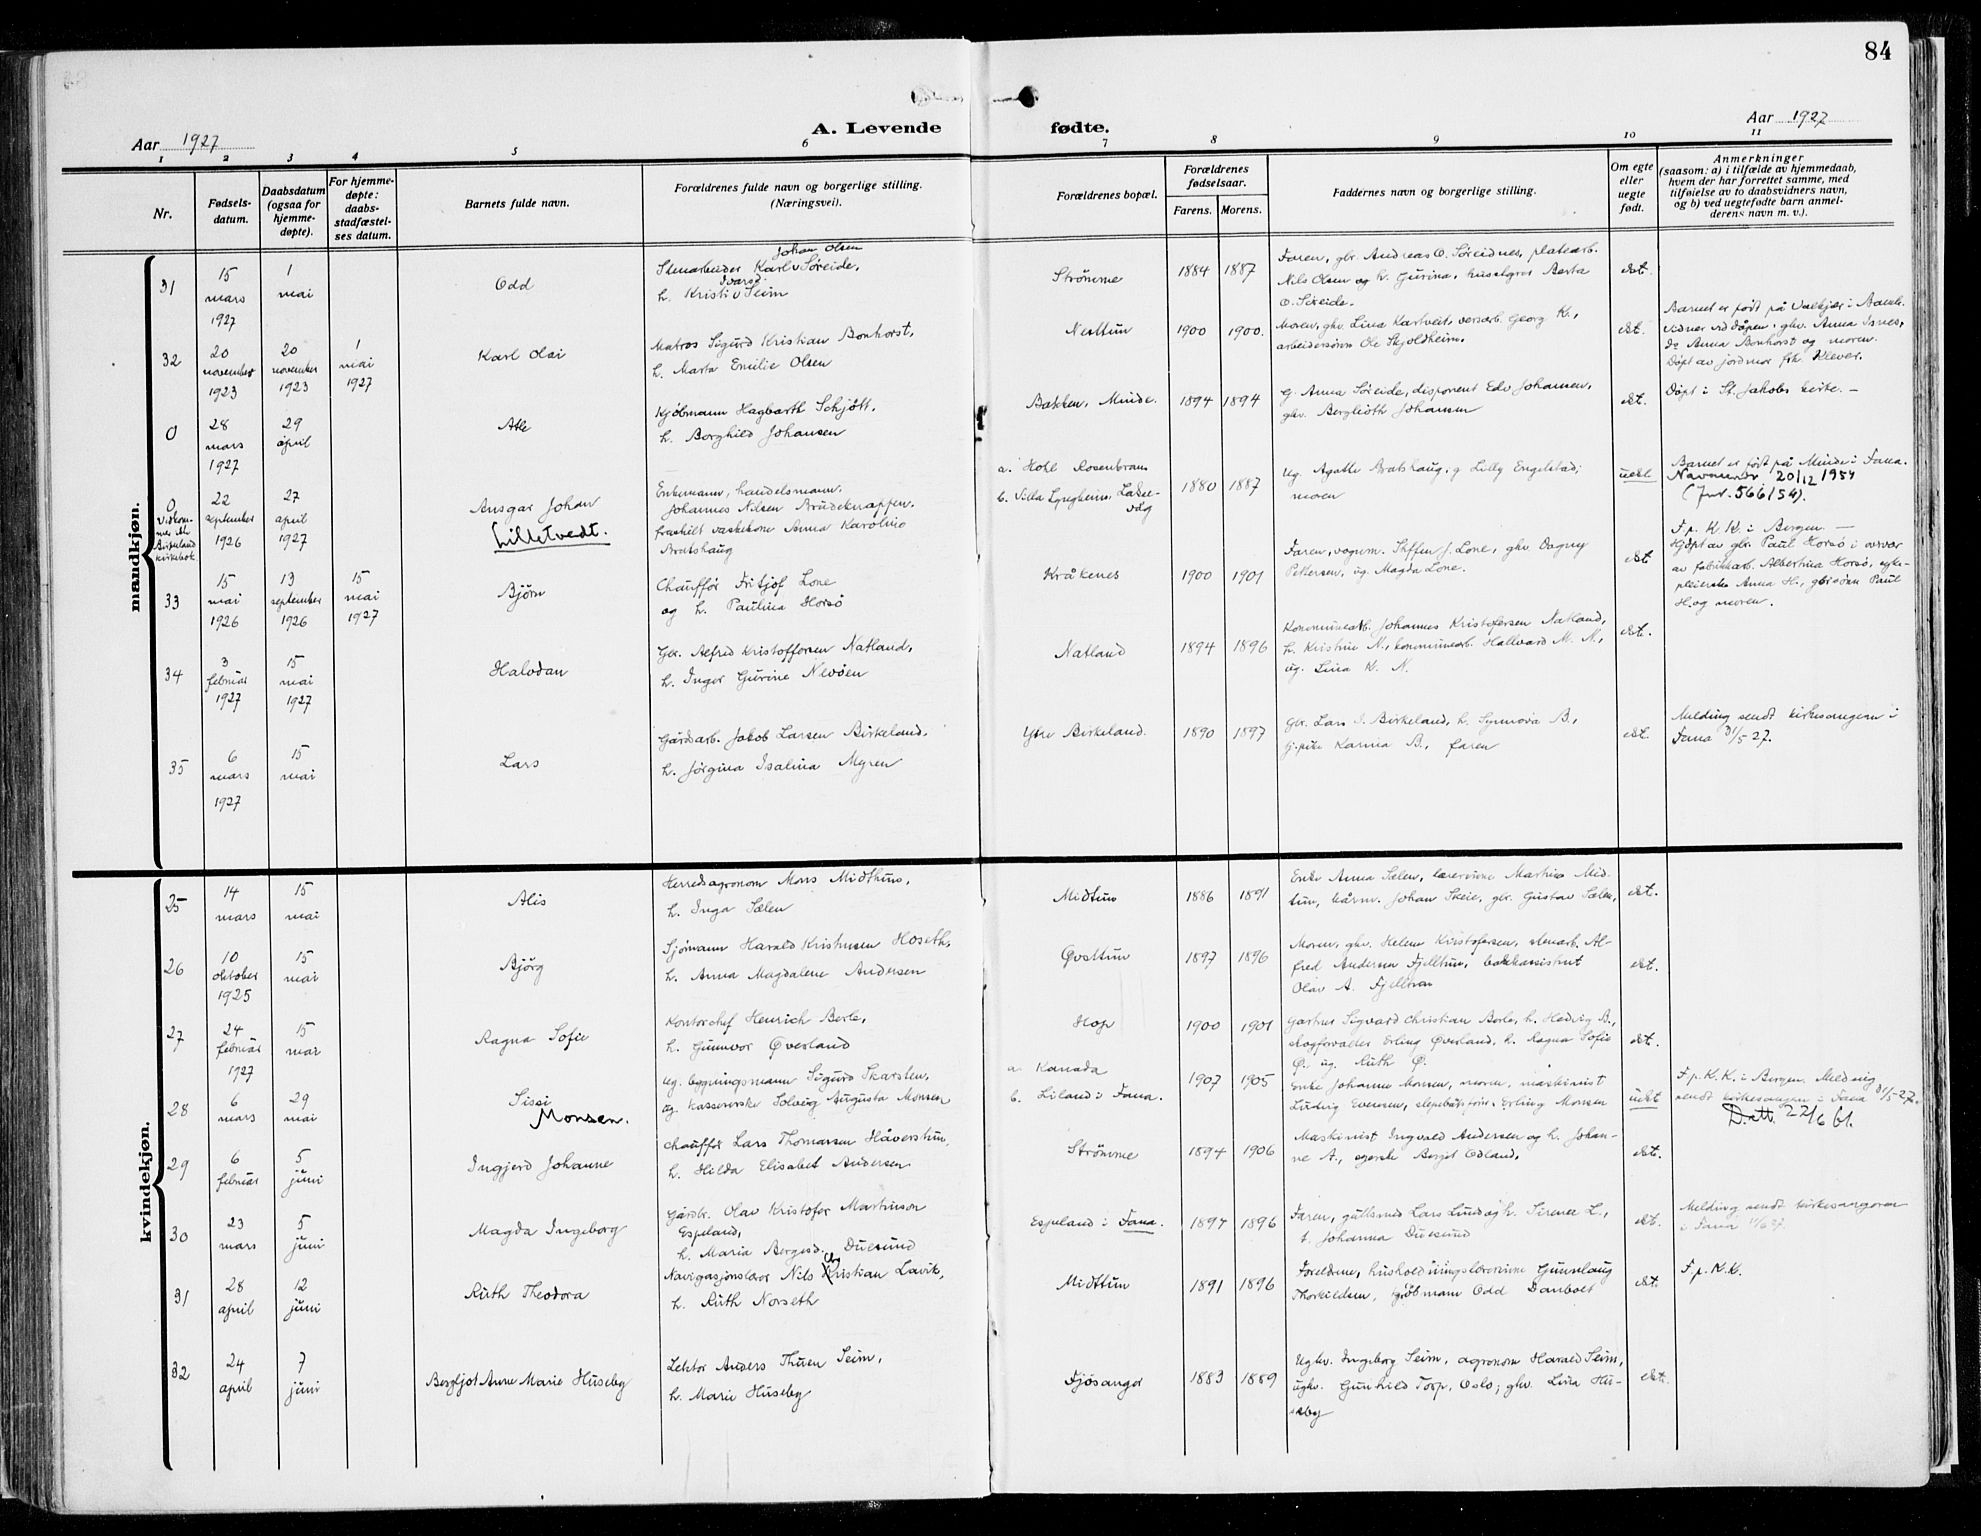 84
Aar 1927
A. Levende fødte.
Aar 1927
1 2 3 4 5 6 7 8 9 10 11
Nr.
Fødsels-
datum.
Daabsdatum
(ogsaa for
hjemme-
døpte).
For hjemme-
døpte:
daabs-
stadfæstel-
ses datum.
Barnets fulde navn.
Forældrenes fulde navn og borgerlige stilling.
(Næringsvei).
Forældrenes bopæl.
Forældrenes
fødselsaar.
Farens. Morens.
Faddernes navn og borgerlige stilling.
Om egte
eller
uegte
født.
Anmerkninger
(saasom: a) i tilfælde av hjemmedaab,
hvem der har forrettet samme, med
tilføielse av to daabsvidners navn,
og b) ved uegtefødte barn anmel-
derens navn m. v.).
mandkjøn.
31
15
mars
1927
1
mai
Odd
Johan Olsen
Stenarbeider Karl v Søreide,
Ivarsd.
h. Kristi v Seim
Strömme
1884 1887
Faren, gbr. Andreas O. Søreidnes, platearb.
Nils Olsen og h. Gurina, Berta
O. Søreide.
ekt.
32
20
november
1923
20
november
1923
1
mai
1927
Karl Olai
Matros Sigurd Kristian Bonhorst,
h. Marta Emilie Olsen
Nesttun
1900 1900.
Moren, ghv. Lina Kartveit, Georg K.,
arbeidersönn Ole Skjoldheim.
ekt.
Barnet er født på
vidner ved dåpen: ghv. Anna
do Anna Bonhorst og moren.
Döpt av jordmor frk. Klever.
0
28
mars
1927
29
april
Atle
Kjøbmann Hagbarth Schjött,
h. Borghild Johansen
Bakken, Minde.
1894 1894
g. Anna Søreide, disponent Edv Johansen,
ghv. Bergliöth Johansen
ekt.
Döpt i St. Jakobs kirke. –
0
Vidkom-
mer
Birkeland
kirkebok
22
september
1926
27
april
1927
Ansgar Johan
Lilletvedt.
Enkemann, handelsmann
Johannes Nilsen Brudeknappen,
fraskilt vaskekone Anna Karoline
Bratshaug
a. Hotel Rosenkrans
b. Villa Lyngheim,
1880 1887
ug. Agathe Bratshaug, g Lilly Engelstad;
moren
uekt
Barnet er født på Minde i Fana.
Navnendr 20/12 1954
(Jnr. 566/54).
33
15
mai
1926
13
september
1926
15
mai
1927
Björn
Chauffør Fritjof Lone
og h. Paulina Horsö
Kråkenes
1900 1901
Faren, vognm. Steffen J. Lone, ghv Dagny
Pettersen, ug. Magda Lone.
ekt
F. p. K K i Bergen. –
Hjdøpt av gbr. Paul Horsö i overvær
av fabrikkarb. Albertina Horsö, syke-
pleierske Anna H., gbrsönn Paul
H. og moren.
34
3
februar
1927
15
mai
1927
Halvdan
Gbr. Alfred Kristoffersen Natland,
h. Inger Gurine Nevöen
Natland
1894 1896
Kommunearb. Johannes Kristofersen Natland,
h. Kristine N., kommunearb. Hallvard M. N.,
ug. Lina K. N.
ekt.
35
6
mars
1927
15
mai
Lars
Gårdsarb. Jakob Larsen Birkeland,
h. Jørgina Isalina Myren
Ytre Birkeland.
1890 1897
Gbr. Lars J. Birkeland, h. Synnova B.,
Karina B., faren
ekt.
Melding sendt kirkesangeren i
Fana 31/5 27.
kvindekjøn.
25
14
mars
15
mai
Alis
Herredsagronom Mons Midthun,
h. Inga Sælen
Midtun
1886 1891
Enke Anna Sælen, lærerinne Martha Mid-
tun, Johan Skeie, gbr. Gustav Sælen,
ekt.
26
10
oktober
1925
15
mai
Bjørg
Sjømann Harald Kristensen Hoseth,
h. Anna Magdalene Andersen
Øvsttun
1897 1896
Moren, ghv. Helene Kristofersen, stenarb. Al-
fred Anderson Fjelltun,
Olav A. Fjelltun
ekt.
27
24
februar
1927
15
mai
Ragna Sofie
Kontorchef Henrich Berle,
h. Gunnvor Øverland
Hop
1900 1901
Gartner Sigvard Christian Berle, h. Hedvig B.,
skogforvalter Erling Øverland, h. Ragna Sofie
Ø. ug. Ruth Ø.
ekt.
28
6
mars
29
mai
Sissi
Monsen.
ug. bygningsmann Sigurd Skarsten,
ug. Kassererske Solveig Augusta Monsen
a. Kanada
b. Liland i Fana.
1907 1905
Enke Johanne Monsen, moren, maskinist
Ludvig Evensen, Erling Monsen
uekt
F. p. K. K. i Bergen. Melding
sendt kirkesangeren i Fana 31/5-27.
D.att. 22/6 61.
29
6
februar
5
juni
Ingjerd Johanne
Chauffør Lars Thomassen Håverstun,
h. Hilda Elisabet Andersen
Strömme
1894 1906
Maskinist Ingvald Andersen og h. Johan-
ne A., syerske Bergit Ödland.
ekt.
30
23
mars
5
juni
Magda Ingeborg
Gårdbr. Olav Kristofer Martinson
Espeland,
h. Maria Bergesd. Duesund
Espeland i Fana.
1894 1896
Faren, gullsmed Lars Lund og h. Sirener L.,
t. Johanna Duesund
ekt.
Melding sendt kirkesangeren
i Fana
31
28
april
12
juni
Ruth Theodora
Navigasjonslærer Nils Christian Lavik,
h. Ruth Norseth
Midttun
1891 1896
Foreldrene, husholdningslærerinne Gunnlaug
Thorkildsen, kjöbmann Odd Danbolt
ekt.
F. p. K. K.
32
24
april
7
juni
Bergljot Anne Marie Huseby
Lektor Anders Thuen Seim,
h. Marie Huseby
Fjøsanger
1883 1889
Ughv. Ingeborg Seim, agronom Harald Seim,
ughv. Gunhild Torp, Oslo; ghv. Lina Hu-
seby
ekt.